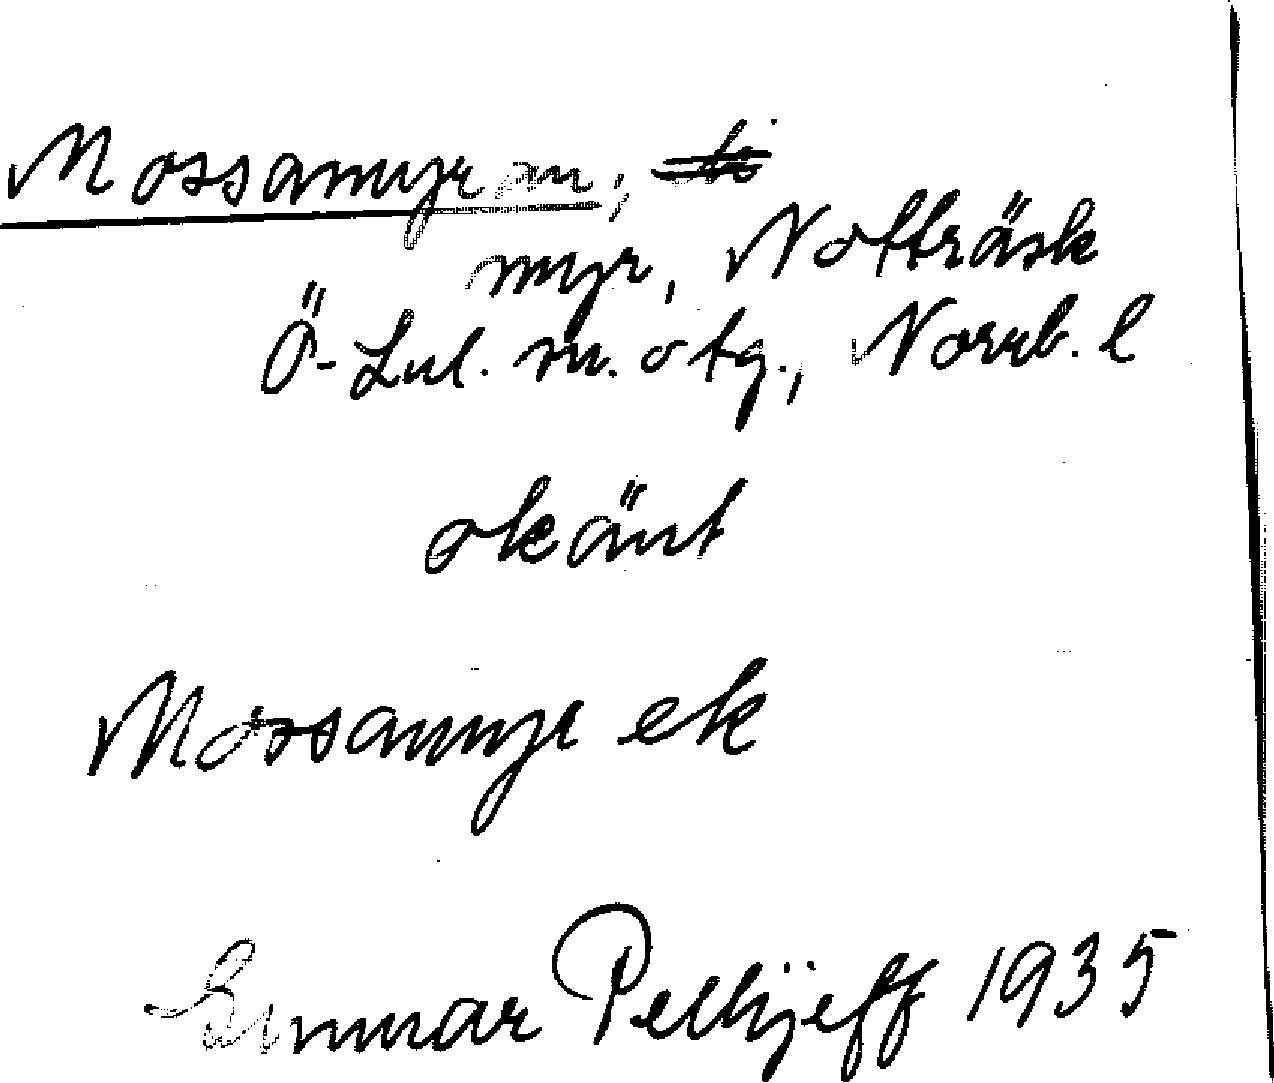 Mossamyran,
myr, Nofträsk
Ö-Lul. sn. o tg., Norrb. l
okänt
Mossamyr ek
Gunnar Pellijeff 1935